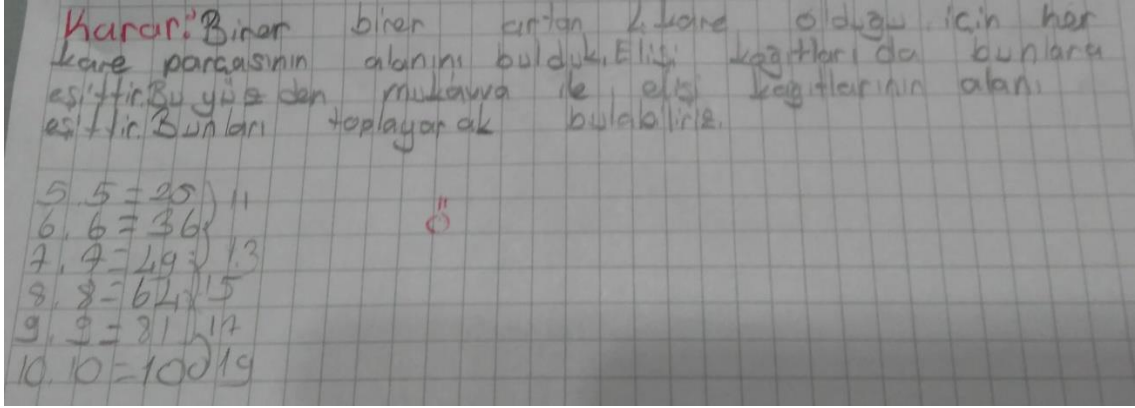 Karar: Birer birer artan 4 kare olduğu için her
kare parçasının alanını bulduk. Elişi kağıtları da bunlara
eşittir. Bu yüzden mukavva ile elişi kağıtlarının alanı
eşittir. Bunları toplayarak bulabiliriz.
5.5=25 } 11
6.6=36 }
7.7=49 } 13
8.8=64 } 15
9.9=81 } 17
10.10=100 } 19
Ö